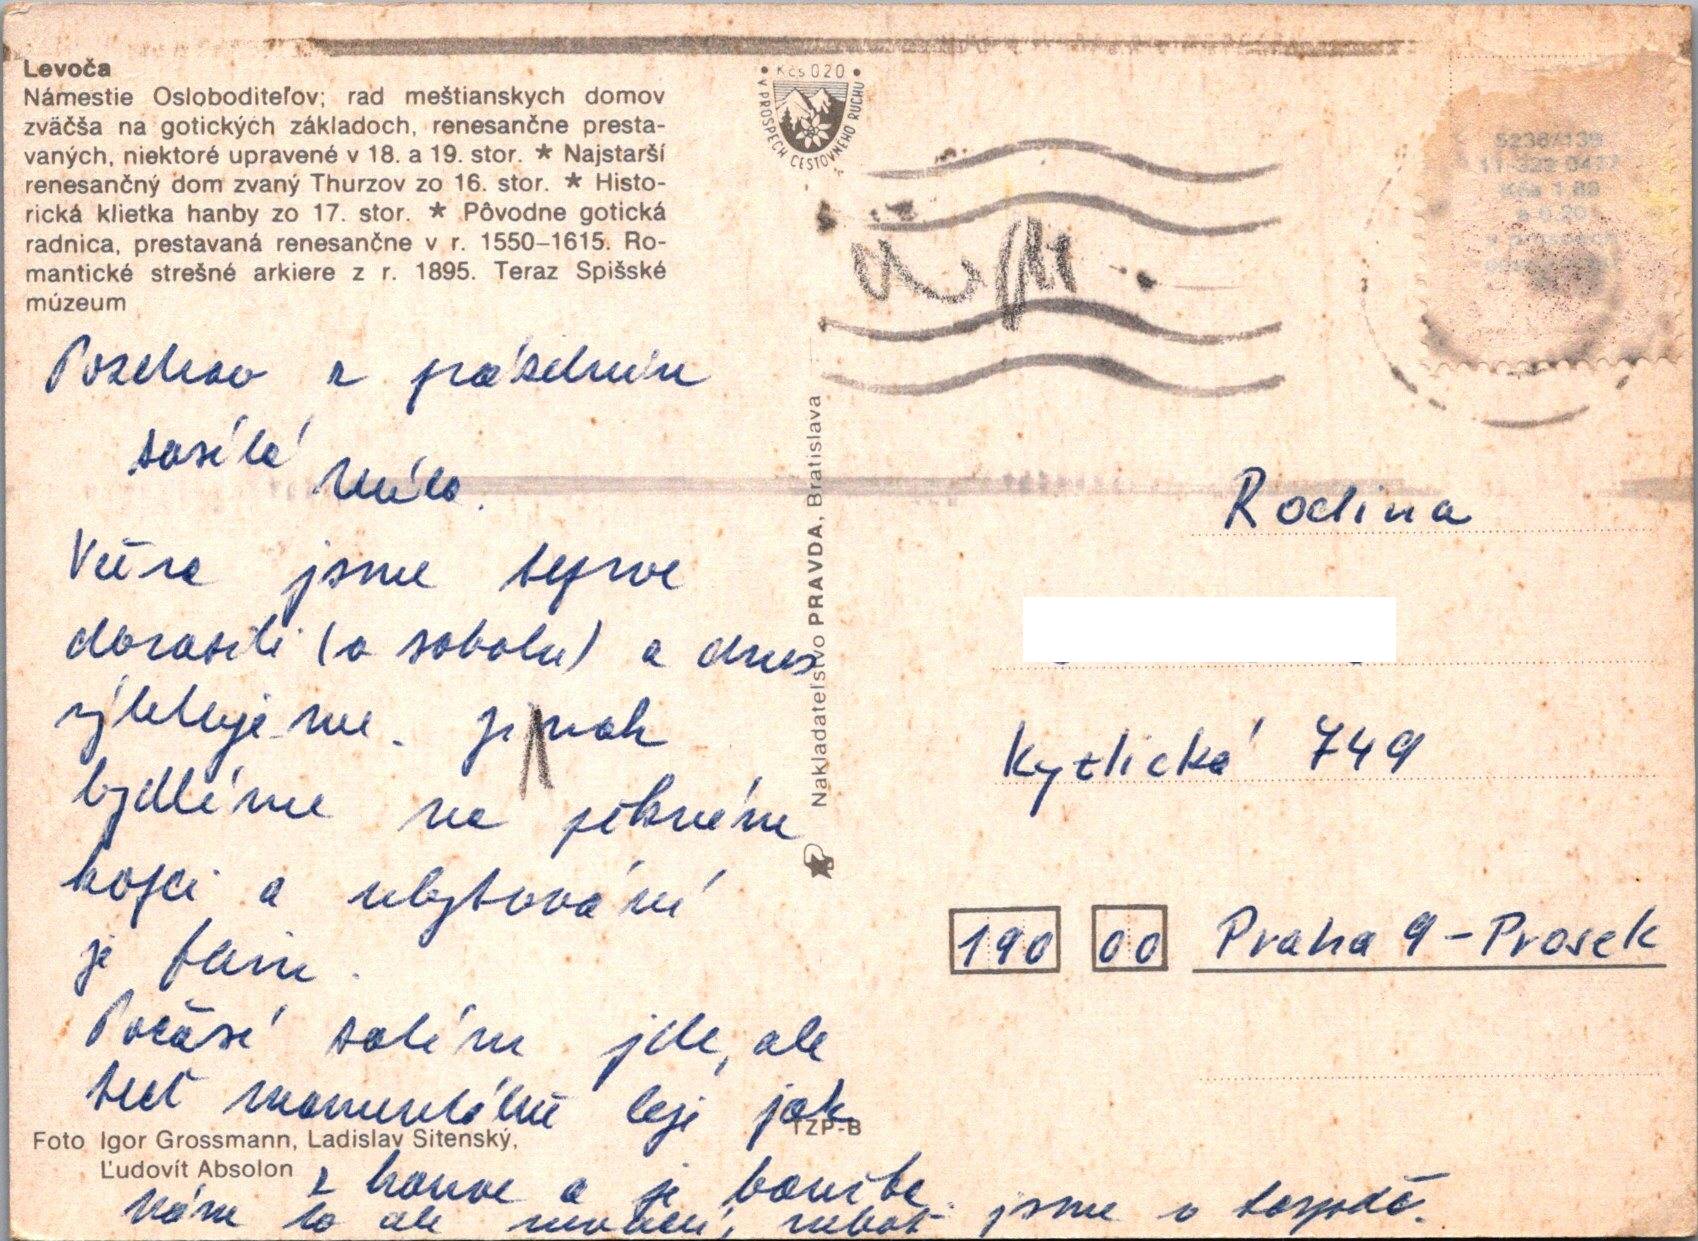 Levoča
Námestie Osloboditeľov; rad meštianskych domov
zväčša na gotických základoch, renesančne presta-
vaných, niektoré upravené v 18. a 19. stor. * Najstarší
renesančný dom zvaný Thurzov zo 16. stor. * Histo-
rická klietka hanby zo 17. stor. * Pôvodne gotická
radnica, prestavaná renesančne v r. 1550–1615. Ro-
mantické strešné arkiere z r. 1895. Teraz Spišské
múzeum
• Kčs 020 •
V PROSPECH CESTOVNÉHO RUCHU
Pozdrav z prázdnin
zasílá
Včera jsme teprve
dorazili (v sobotu) a dnes
výletujeme. Jinak
bydlíme na pěkném
kopci a ubytování
je fajn.
Počasí zatím jde, ale
teď momentálně leje jak
z konve a je bouřka.
Nám to ale nevadí, neboť jsme v hospodě.
Foto Igor Grossmann, Ladislav Sitenský,
Ľudovít Absolon
TZP-B
Nakladateľstvo PRAVDA, Bratislava
Rodina
Kytlická 749
190 00 Praha 9 - Prosek